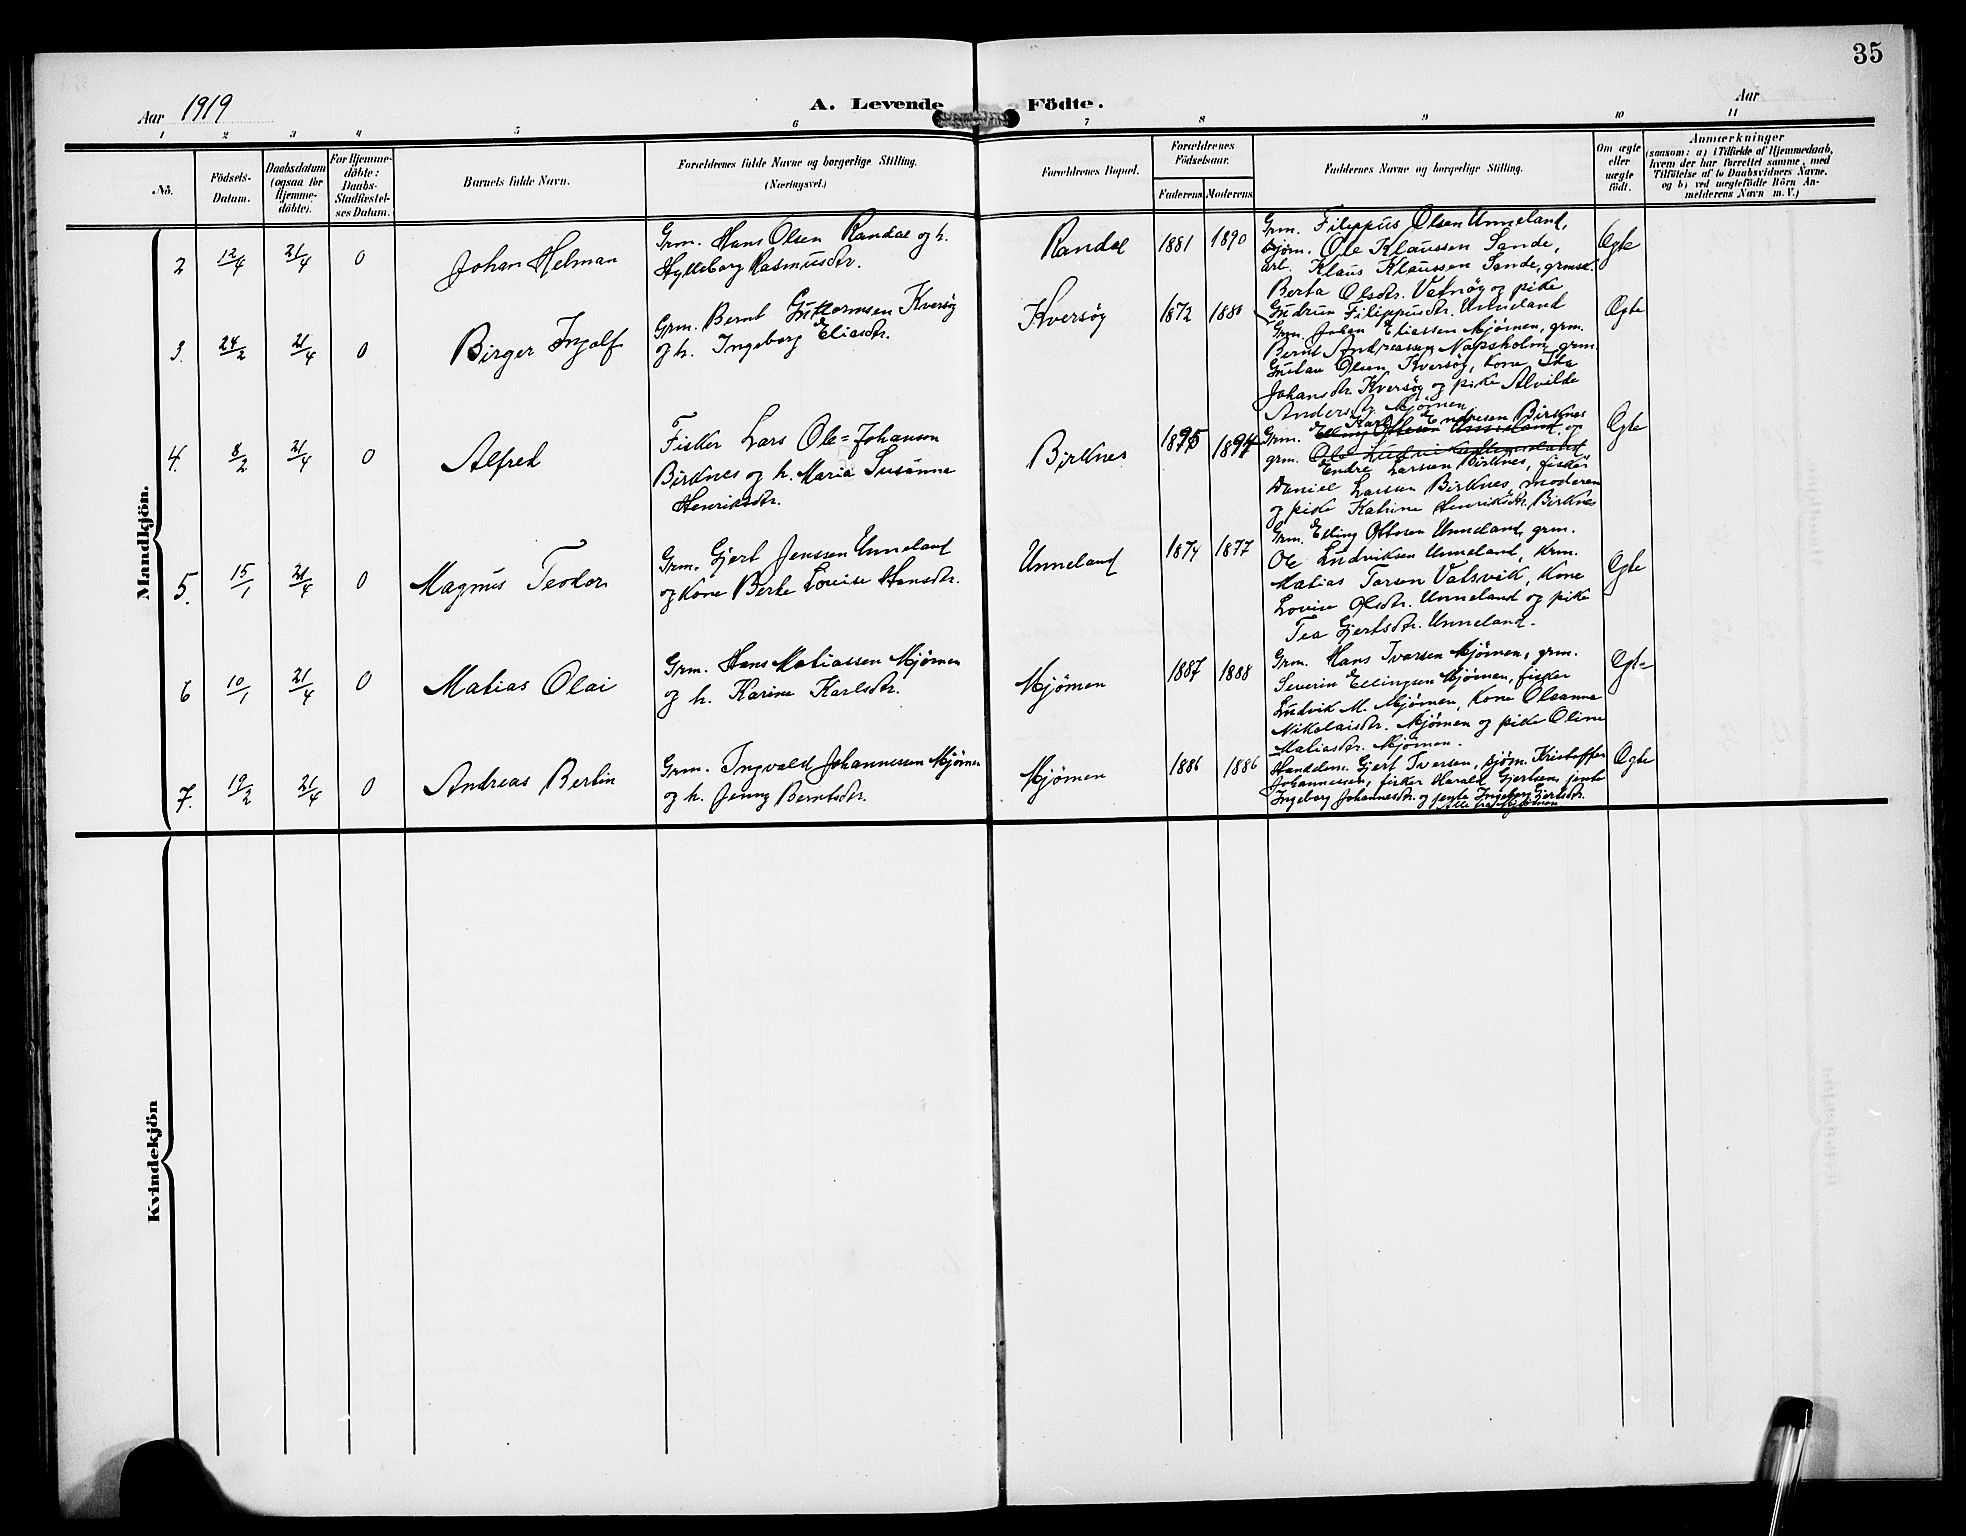 35
Aar 1919
A. Levende Födte.
Aar
1 2 3 4 5 6 7 8 9 10 11
No.
Födsels-
Datum.
Daabsdatum
(ogsaa for
Hjemme-
döbte).
For Hjemme-
döbte:
Daabs-
Stadfæstel-
ses Datum.
Barnets fulde Navn.
Forældrenes fulde Navne og borgerlige Stilling.
(Næringsvei.)
Forældrenes Bopæl.
Forældrenes
Födselsaar.
Faderens Moderens
Faddernes Navne og borgerlige Stilling.
Om ægte
eller
uægte
födt.
Anmærkninger
(saasom: a) i Tilfælde af Hjemmedaab,
hvem der har forrettet samme, med
Tilföielse af to Daabsvidners Navne.
og b) ved uægtefödte Börn An-
melderens Navn m. V.)
Mandkjön.
2 12/4 21/4 0 Johan Helman
Grm. Hans Olsen Randal og h.
Hylleborg Rasmusdtr.
Randal 1881 1890
Grm. Filippus Olsen Unneland,
bjørn. Ole Klaussen Sande,
arb. Klaus Klaussen Sande, grmsk.
Berta Olsdtr. Vatnøy og pike
Gudrun Filippusdtr. Unneland
Ægte
3. 24/2 21/4 0 Birger Ingolf
Grm. Bernt Guttormsen Kversøy
og h. Ingeborg Eliasdtr.
Kversøy 1872 1880
Grm. Johan Eliassen Mjømen, grm.
Bernt Andreassen Napsholm, grm.
Gustav Olsen Kversøy, Kone Ida
Johansdtr. Kversøy og pike Alvilde
Andersdtr. Mjømen
Ægte
4. 8/2 21/4 0 Alfred
Fisker Lars Ole=Johansen
Birknes og h. Maria Susanna
Henriksdtr.
Birknes 1895 1894
Karl Endresen Birknes
Grm. Elling Ottesen Unneland og
grm. Ole Ludviksen Unneland
Endre Larssen Birknes, fisker
Daniel Larssen Birknes, moderen
og pike Katrine Henriksdtr. Birknes
Ægte
5. 15/1 21/4 0 Magnus Teodor
Grm. Gjert Jenssen Unneland
og Kone Berte Lovise Hansdtr.
Unneland 1874 1877
Grm. Elling Ottosen Unneland, grm.
Ole Ludviksen Unneland, Krm.
Matias Torsen Vatsvik, Kone
Lovise Olsdtr. Unneland og pike
Tea Gjertsdtr. Unneland.
Ægte
6 10/1 21/4 0 Matias Olai
Grm. Hans Matiassen Mjømen
og h. Karine Karlsdtr.
Mjømen 1887 1888
Grm. Hans Ivarsen Mjømen, grm.
Severin Ellingsen Mjømen, fisker
Ludvik M. Mjømen, Kone Oleanna
Nikolaisdtr. Mjømen og pike Oline
Matiasdtr. Mjømen.
Ægte
7. 19/2 21/4 0 Andreas Bertin
Grm. Ingvald Johannessen Mjømen
og h. Jenny Berntsdtr.
Mjømen 1886 1886
Handelsm. Gjert Iversen, sjøm. Kristoffer
Johannessen, fisker Harald Gjertsen, jente
Ingeborg Johannesdtr. og jente Ingeborg Gjertsdtr.
Alle fra Mjømen
Ægte
Kvindekjön